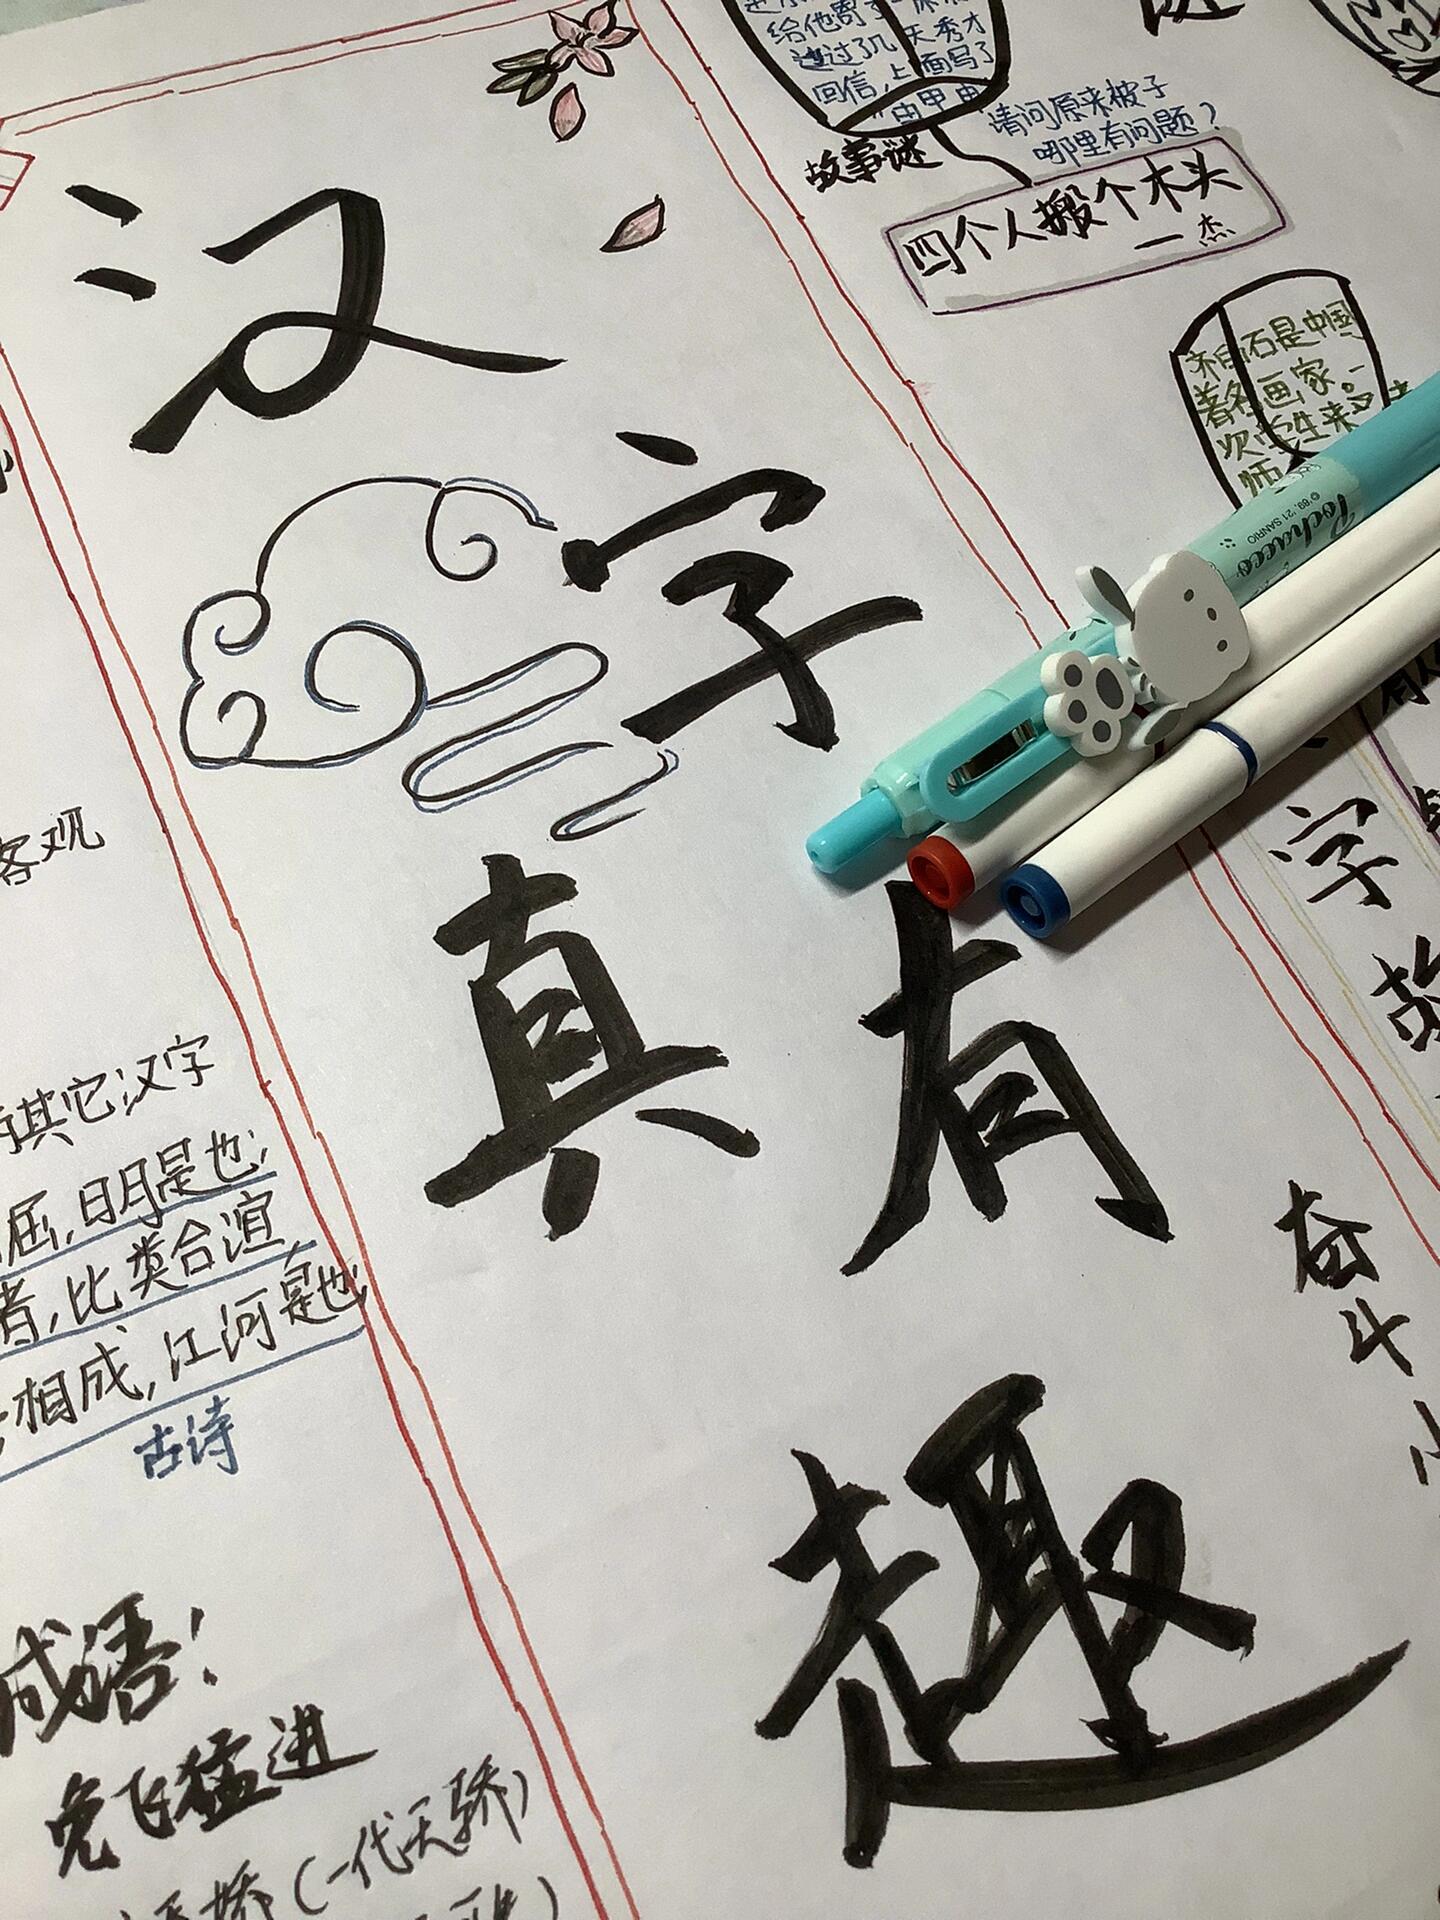 汉
字
真
有
趣
客观
其它汉字
屈,日月是也;
者,比类合谊,
相成,江河是也;
古诗
成语:
兔飞猛进
(一代天骄)
给他寄了
天秀才
回信,上面写了
"由甲申
请问原来被子
哪里有问题?
故事谜
四个人搬个木头
一杰
齐白石是中国
著名画家。一
次学生来
师
Pochacco
©'89,'21 SANRIO
字
故
奋
斗
小